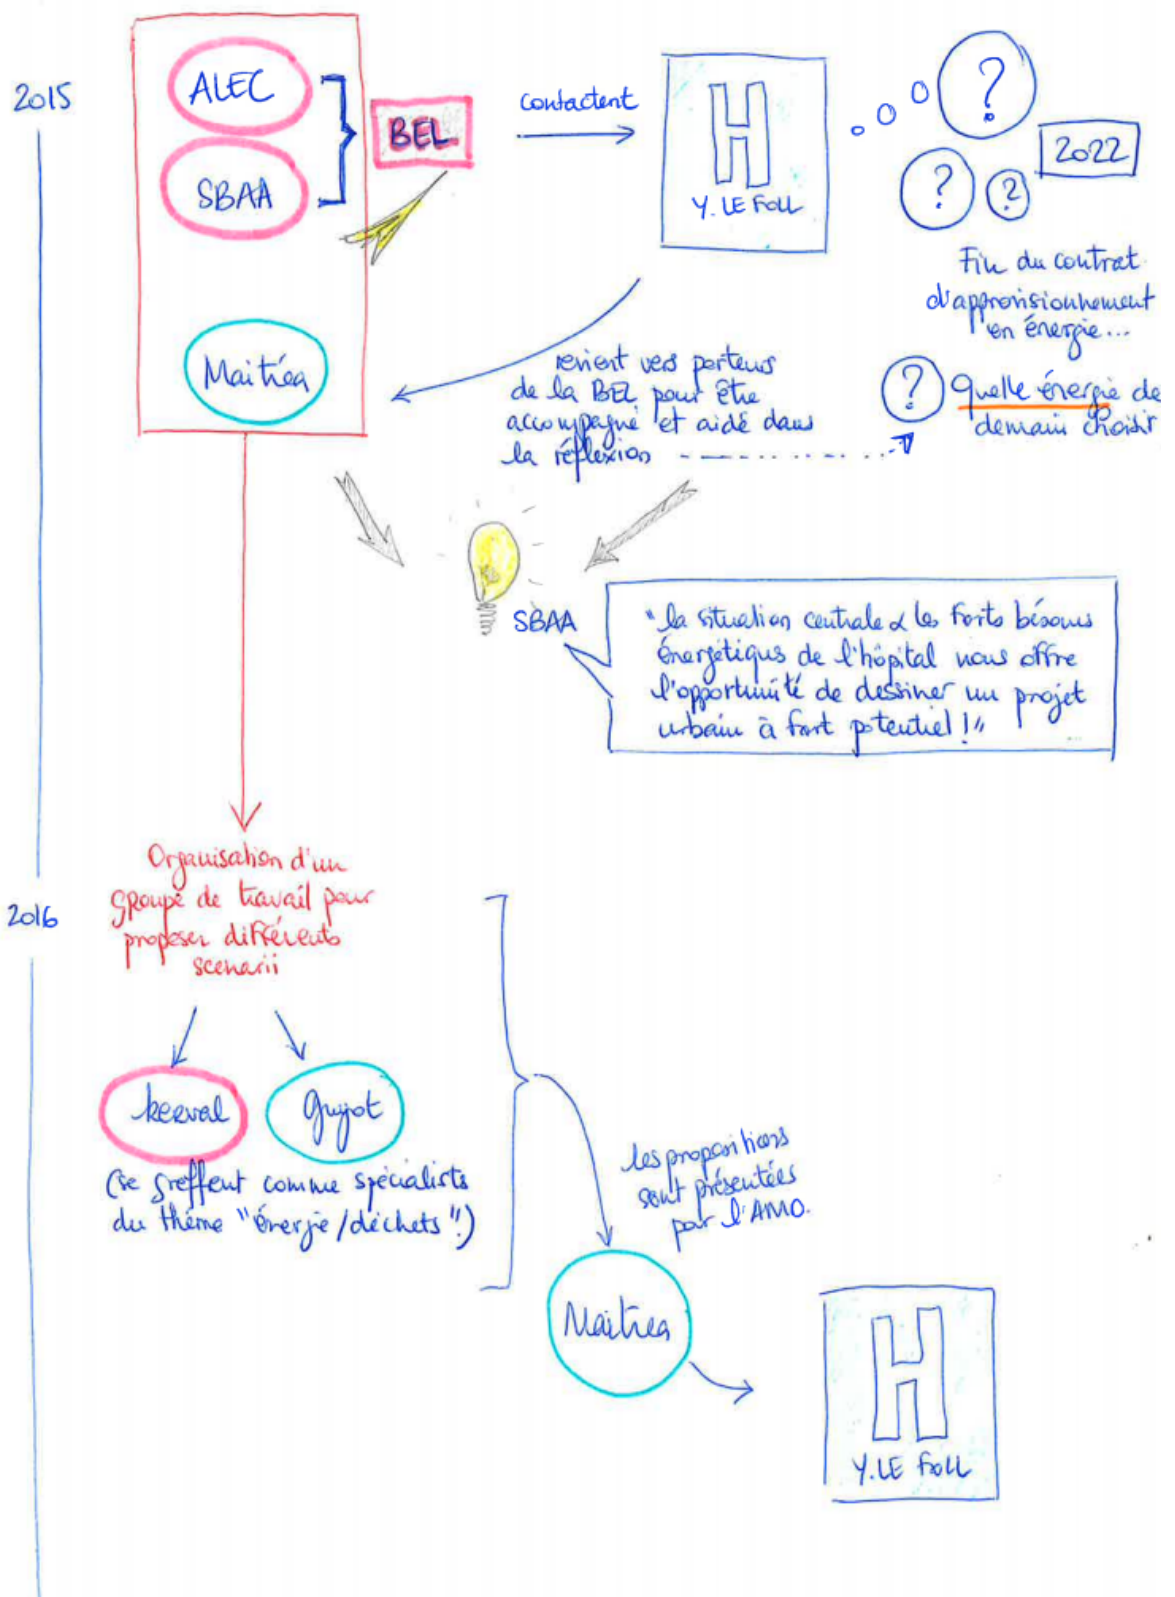 2015
ALEC
SBAA
BEL
contactent
H
Y. LE FOLL
?
?
?
2022
Fin du contrat
d'approvisionnement
en énergie...
?
Quelle énergie de
demain choisir
Maitréa
revient vers porteurs
de la BEL pour être
accompagné et aidé dans
la réflexion
SBAA
"la situation centrale & les forts besoins
énergétiqus de l'hôpital nous offre
l'opportunité de dessiner un projet
urbain à fort potentiel !"
Organisation d'un
groupe de travail pour
proposer différents
scenarii
2016
kerval
Guyot
(se greffent comme spécialists
du thème "énergie/déchets".)
les propositions
sont présentées
par l'AMO.
Maitrea
H
Y. LE FOLL